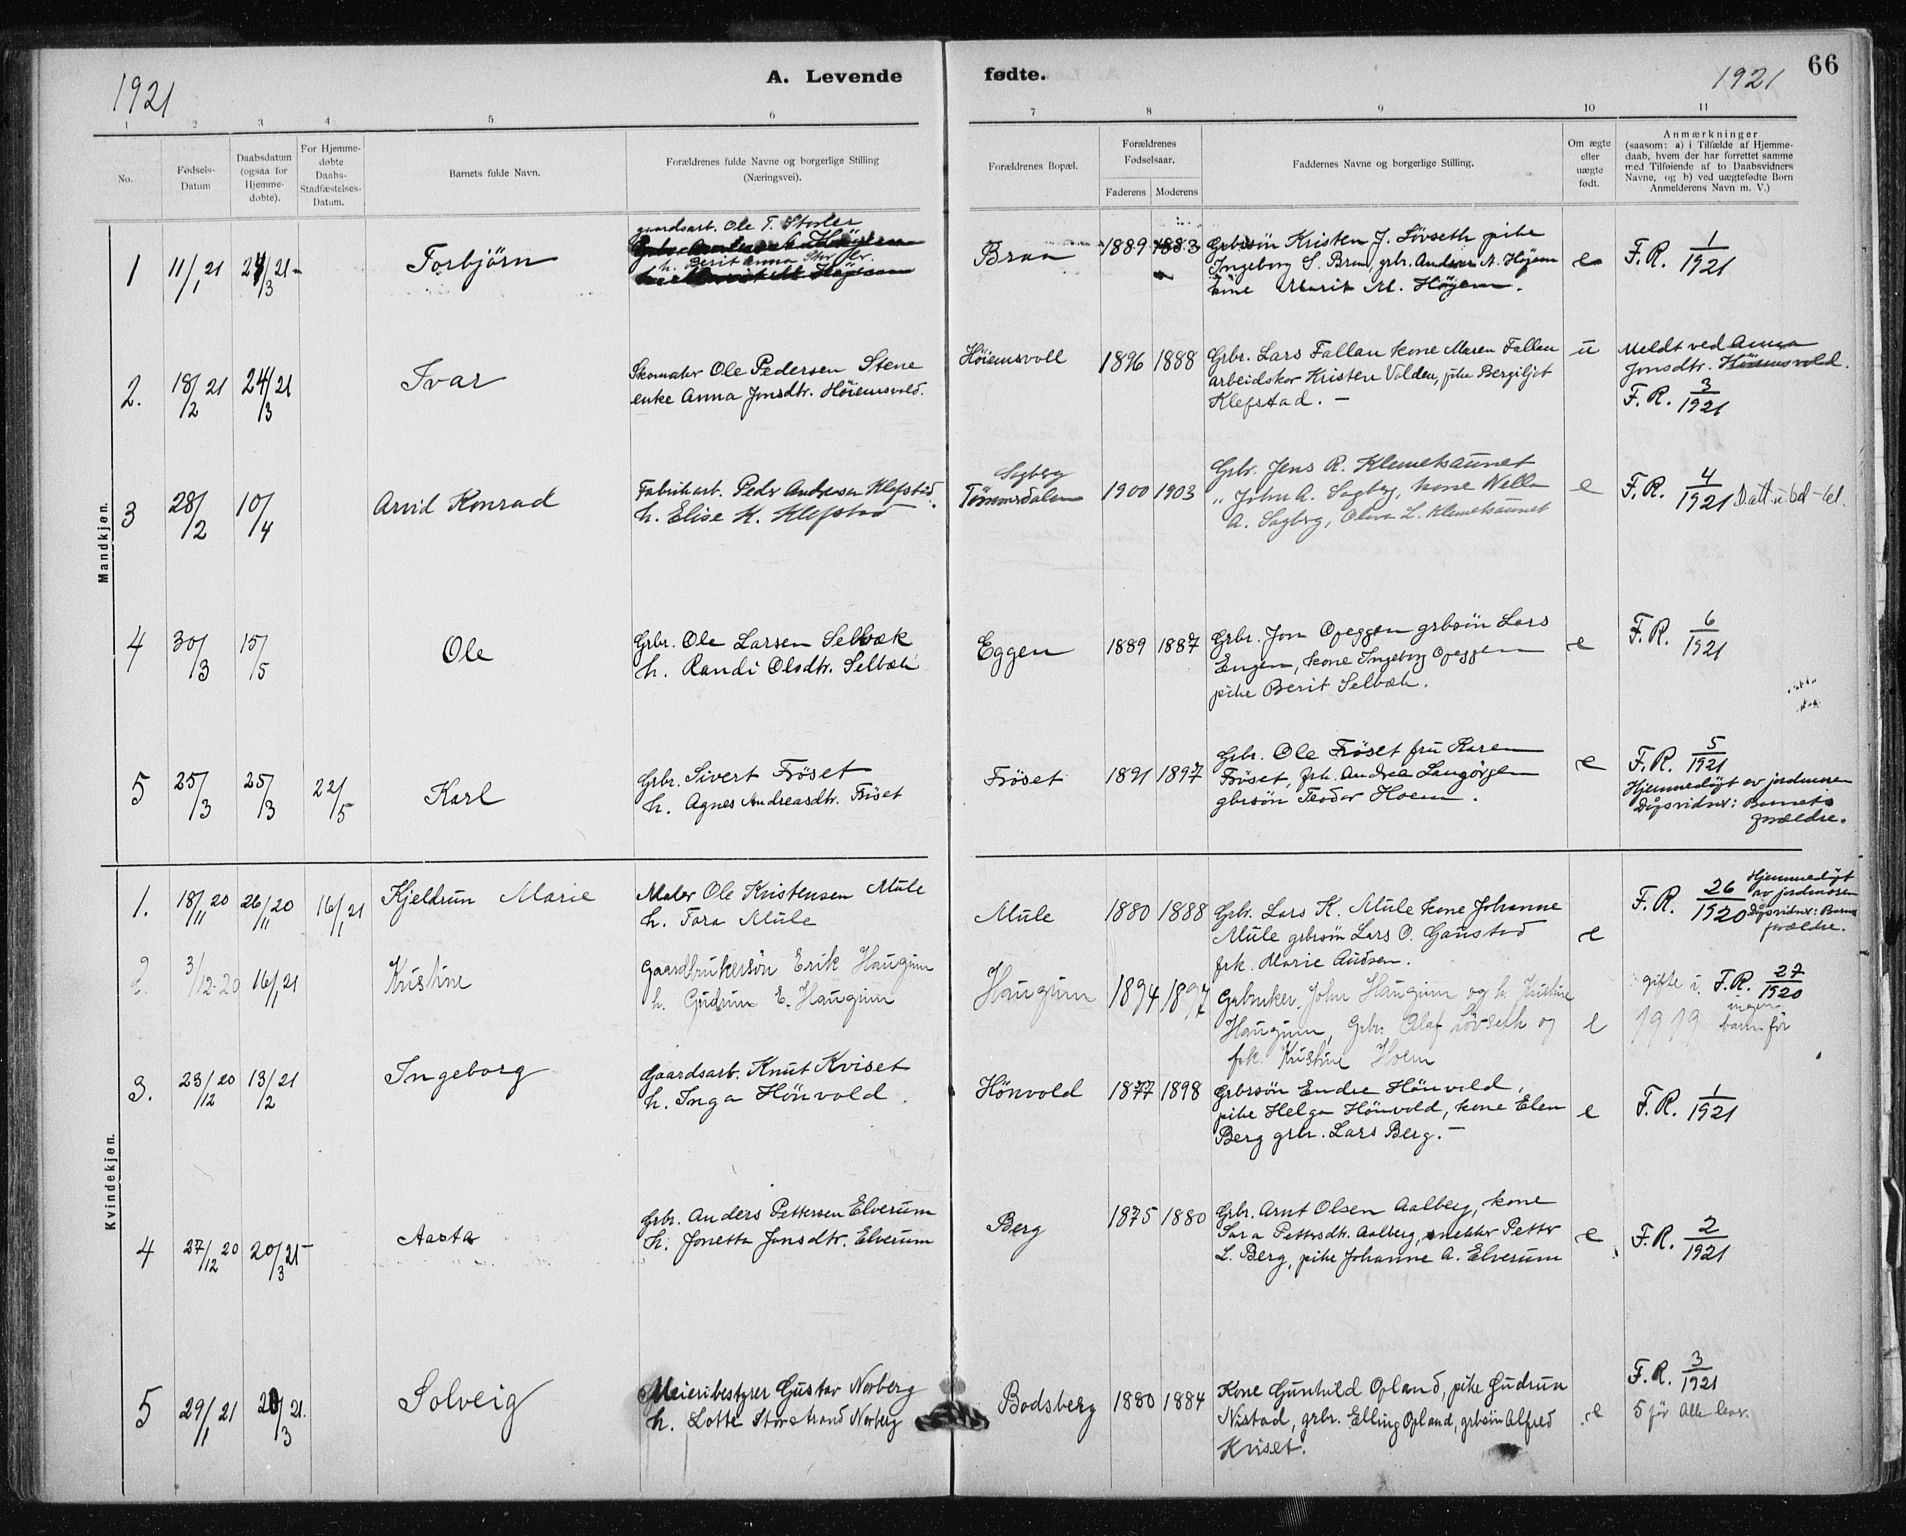 1921
A. Levende fødte.
1921
66
1 2 3 4 5 6 7 8 9 10 11
No.
Fødsels-
Datum
Daabsdatum
(ogsaa for
Hjemme-
døbte).
For Hjemme-
døbte
Daabs-
Stadfæstelses-
Datum.
Barnets fulde Navn.
Forældrenes fulde Navne og borgerlige Stilling
(Næringsvei).
Forældrenes Bopæl.
Forældrenes
Fødselsaar.
Faderens Moderens
Faddernes Navne og borgerlige Stilling.
Om ægte
eller
uægte
født.
Anmærkninger
(saasom: a) i Tilfælde af Hjemme-
daab, hvem der har forrettet samme
med Tilføiende af to Daabsvidners
Navne, og b) ved uægtefødte Børn
Anmelderens Navn m. V.)
Mandkjøn.
1 11/1 21 24/3 21 Torbjörn
gaardsarb. Ole T.
h. Berit Anna
Braa 1889 1883
Grbrsön Kristen J. Lövseth pike
Ingeborg S. Braa, grbr. Anders A. Höjem
kone Marit M. Höyem.
e F.R. 1/1921
2. 18/2 21 24/3 21 Ivar
Skomaker Ole Pedersen Stene
enke Anna Jonsdtr. Höiemsvold.
Höiemsvoll 1896 1888
Grbr. Lars Fallan kone Maren Fallan
arbeidskar Kristen Volden, pike Bergiljot
Klefstad. –
u
Meldt ved Anna
Jonsdtr. Höiemsvold.
F.R. 3/1921
3 28/2 10/4 Arvid Konrad
Fabrikarb. Peder Andreas Klefstad
h. Elise K. Klefstad.
Sagberg
1900 1903
Grbr. Jens R. Klemetsaunet
" John A. Sagberg, kone
A. Sagberg, L. Klemetsaunet
e F.R. 4/1921
4 30/3 15/5 Ole
Grbr. Ole Larsen Selbæk
h. Randi Olsdtr. Selbæk
Eggen 1889 1887
Grbr. Jon Opeggen grbsön Lars
Engen, kone Ingeborg Opeggen
pike Berit Selbæk.
e F.R. 6/1921
5 25/3 25/3 22/5 Karl
Grbr. Sivert Fröset
h. Agnes Andreasdtr. Fröset
Fröset 1891 1897
Grbr. Ole Fröset fru Karen
Fröset, frk. Andrea Langörgen
gbrsön Teodor Hoem.
e F.R. 5/1921
Hjemmedöpt av jordmoren
Dåpsvidner: Barnets
forældre.
Kvindekjøn.
1. 18/11 20 26/11 20 16/1 21 Kjeldrun Marie
Maler Ole Kristensen Mule
h. Tora Mule
Mule 1880 1888
Grbr. Lars K. Mule kone Johanne
Mule grbrsön Lars O. Gaustad
frk. Marie Audsen.
e F.R. 26/1920
Hjemmedöpt
av jordmoren
Dåpsvidner: Barnets
forældre.
2. 3/12 20 16/1 21 Kristine
Gaardbrukersön Erik Haugum
h. Gudrun E. Haugum
Haugum 1894 1897
Gabruker John Haugum og h. Kristine
Haugum, Grbr. Olaf Lövseth og
frk. Kristine Hoem
e gifte i 1919 F.R. 27/1920
ingen
barn för
3. 23/12 20 13/2 21 Ingeborg
Gaardsarb. Knut Kviset
h. Inga Hönvold.
Hönvold 1877 1898
Grbrsön Endre Hönvold,
pike Helga Hönvold, kone Elen
Berg grbr. Lars Berg. –
e F.R. 1/1921
4 27/12 20 20/3 21 Aasta
Grbr. Anders Pettersen Elverum
h. Jonetta Jonsdtr. Elverum
Berg 1875 1880
Grbr. Arnt Olsen Aalberg, kone
Sara Pettersdtr. Aalberg, snekker Petter
L. Berg, pike Johanne A. Elverum
e F.R. 2/1921
5 29/1 21 20/3 21. Solveig
Meieribestyrer Gustav Norberg
h. Lotte Storstrand Norberg
Bodsberg 1880 1884
Kone Gunhild Opland, pike Gudrun
Nistad, grbr. Elling Opland, grbsön Alfred
Kviset.
e F.R. 3/1921
5 för Alle lever.